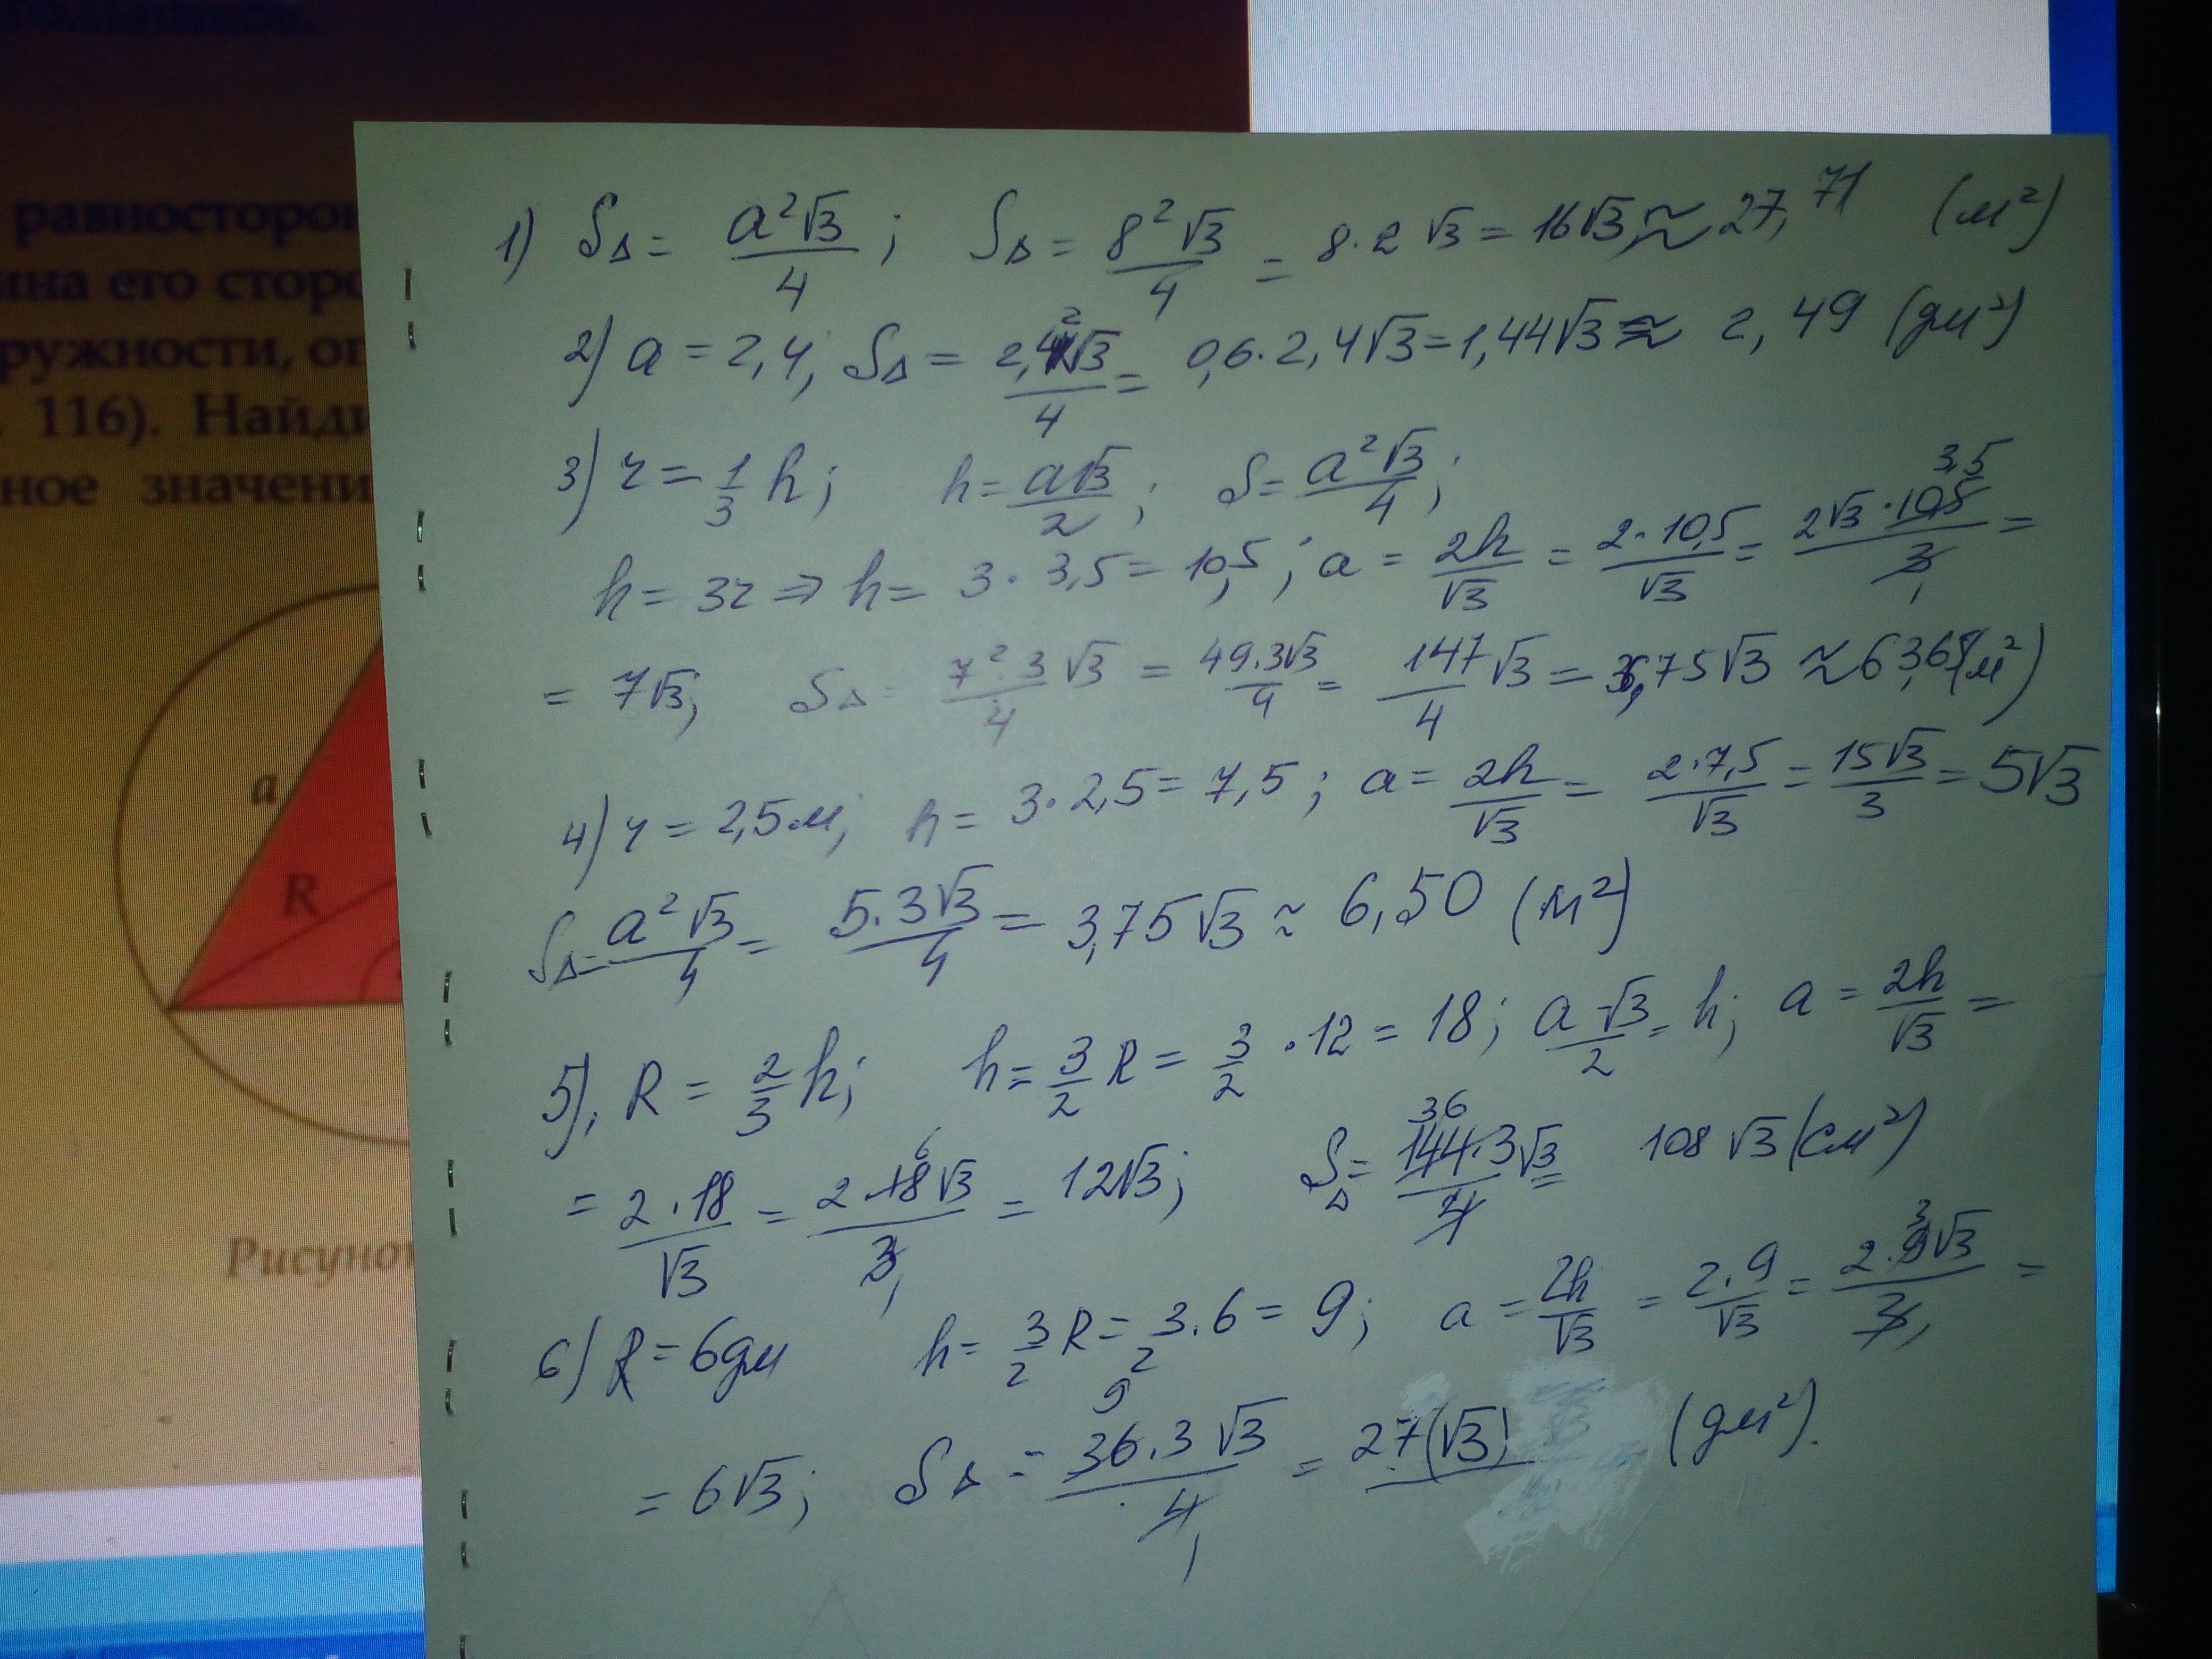 тольников.
равносторон
ина его сторо
ружности, оп
. 116). Найди
ное значени
a
R
Рисунок
1) S△ = a²√3/4; S△ = 8²√3/4 = 8·2√3 = 16√3, ≈ 27,71 (м²)
2) a = 2,4, S△ = 2,4²√3/4 = 0,6·2,4√3 = 1,44√3 ≈ 2,49 (дм²)
3) r = 1/3 h; h = a√3/2; S = a²√3/4;
h = 3r ⇒ h = 3·3,5 = 10,5; a = 2h/√3 = 2·10,5/√3 = 2√3·10,5/3 =
= 7√3; S△ = 7²·3√3/4 = 49·3√3/4 = 147/4 √3 = 36,75√3 ≈ 63,65 (м²)
4) r = 2,5м, h = 3·2,5 = 7,5; a = 2h/√3 = 2·7,5/√3 = 15√3/3 = 5√3
S△ = a²√3/4 = 5·3√3/4 = 3,75√3 ≈ 6,50 (м²)
5), R = 2/3 h; h = 3/2 R = 3/2 ·12 = 18; a√3/2 = h; a = 2h/√3 =
= 2·18/√3 = 2·18√3/3 = 12√3; S△ = 144·3√3/4 = 108√3 (см²)
6) R = 6дм h = 3/2 R = 3/2·6 = 9; a = 2h/√3 = 2·9/√3 = 2·9√3/3 =
= 6√3; S△ = 36·3√3/4 = 27(√3) (дм²).